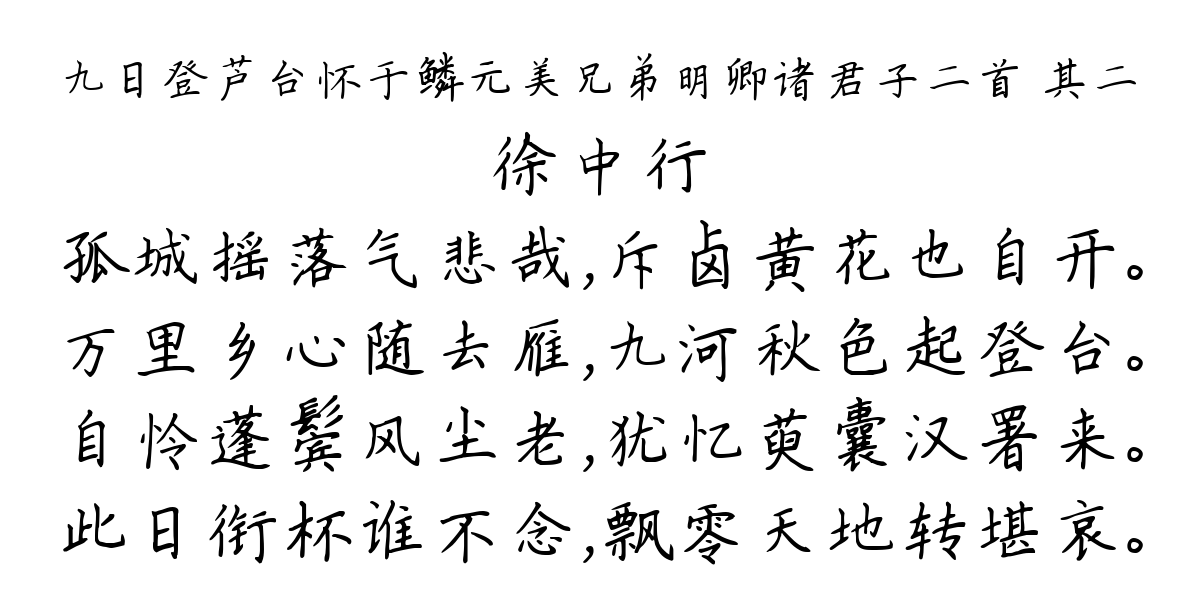 九日登芦台怀于鳞元美兄弟明卿诸君子二首 其二
徐中行
孤城摇落气悲哉,斥卤黄花也自开。
万里乡心随去雁,九河秋色起登台。
自怜蓬鬓风尘老,犹忆萸囊汉署来。
此日衔杯谁不念,飘零天地转堪哀。